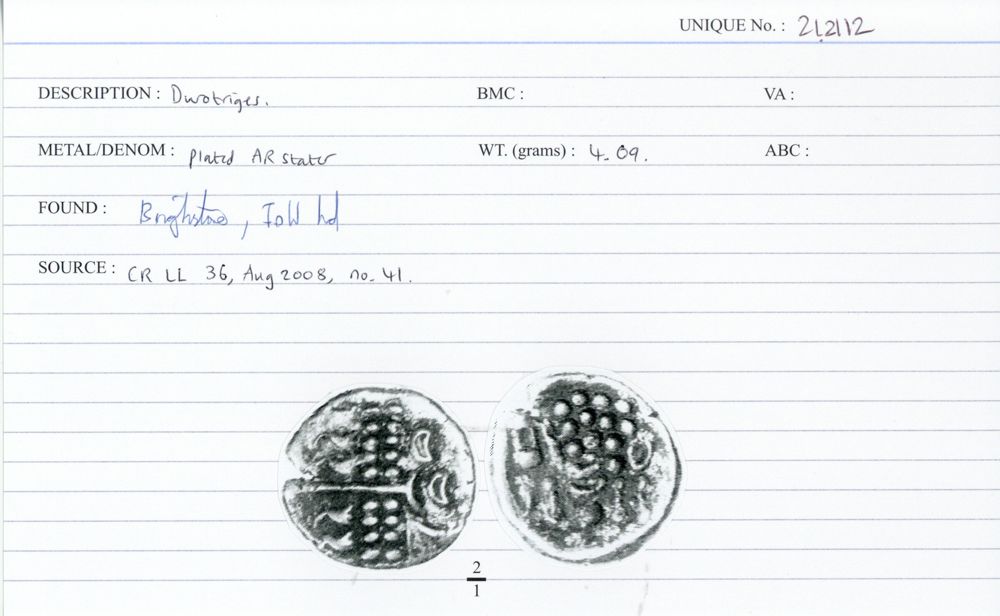 UNIQUE No. : 212112
DESCRIPTION : Durotriges.
BMC :
VA :
METAL/DENOM : Plated AR stater
WT. (grams) : 4.09.
ABC :
FOUND : Brighstone, IoW hd
SOURCE : CR LL 36, Aug 2008, no. 41.
2
1